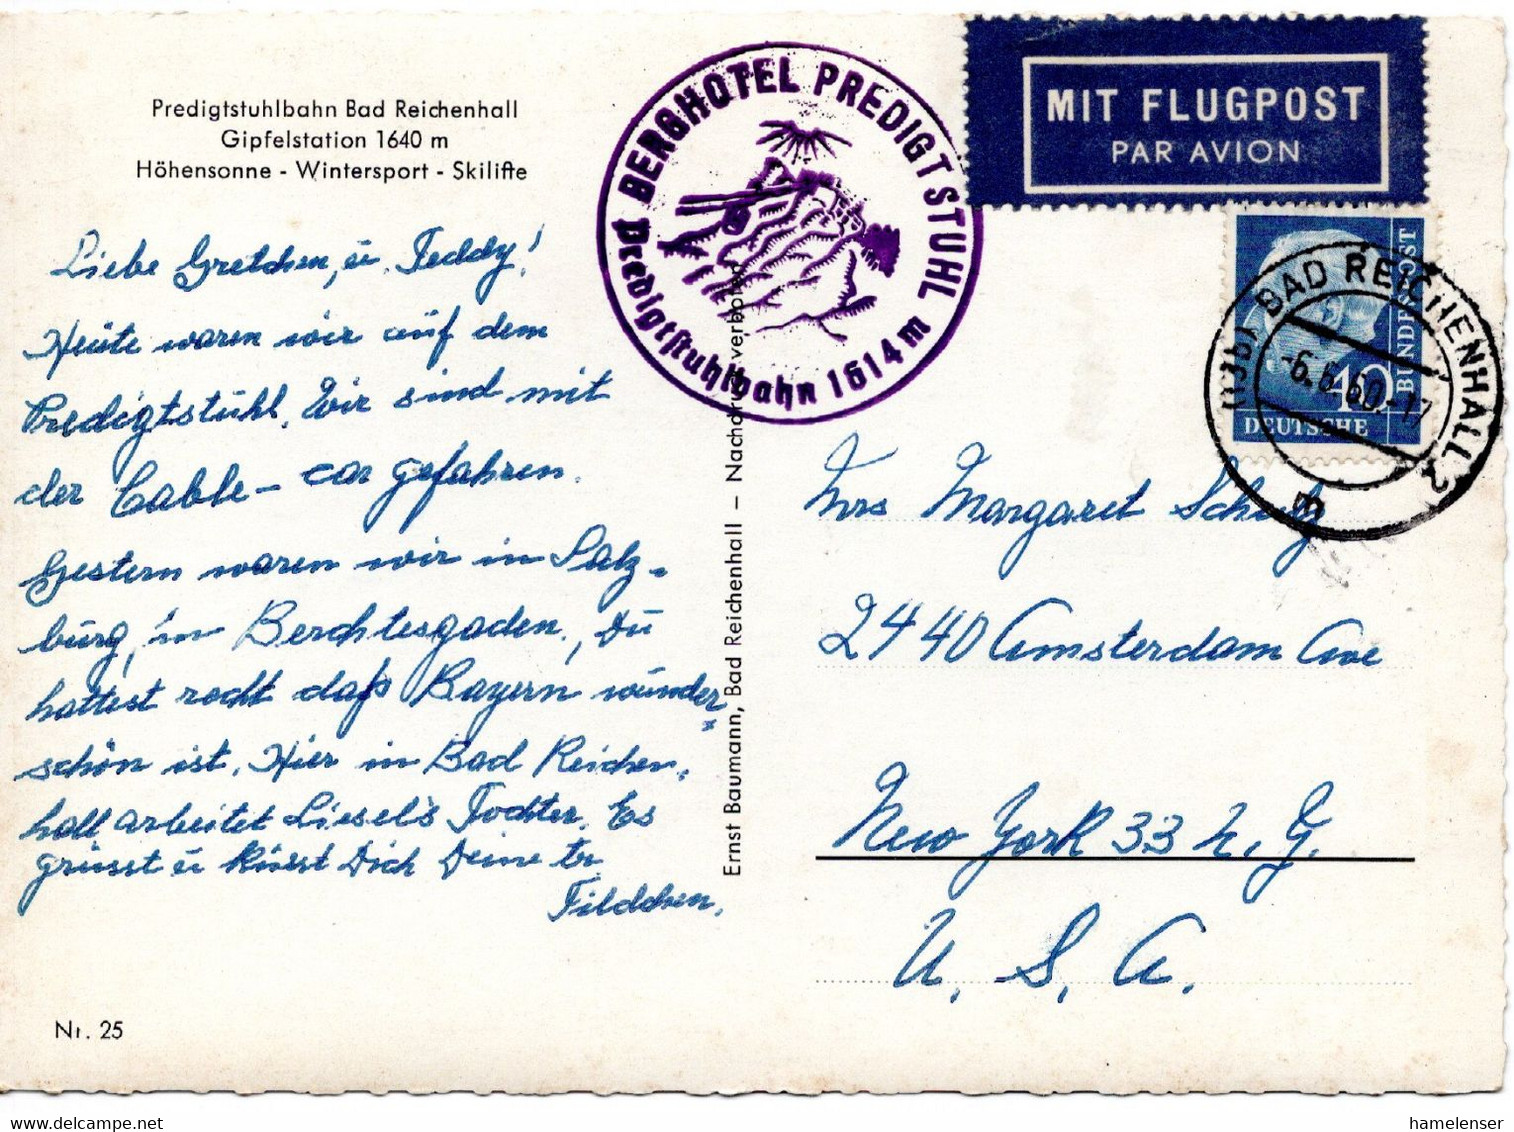 Predigtstuhlbahn Bad Reichenhall
Gipfelstation 1640 m
Höhensonne - Wintersport - Skilifte
Liebe Gretchen, u. Teddy!
Heute waren wir auf dem
Predigtstuhl. Wir sind mit
der Cable- car gefahren.
Gestern waren wir in Salz-
burg, in Berchtesgaden, Du
hattest recht daß Bayern wunder
schön ist. Hier in Bad Reichen-
hall arbeitet Liesel's Tochter. Es
grüsst u küsst Dich Deine tr.
Nr. 25
BERGHOTEL PREDIGTSTUHL
Predigtstuhlbahn 1614 m
Ernst Baumann, Bad Reichenhall – Nachdruck verboten
MIT FLUGPOST
PAR AVION
DEUTSCHE
BUNDESPOST
40
BAD REICHENHALL 2
-6.6.60.-17
Mrs Margaret Schulz
2440 Amsterdam Ave
New York 33 N. Y.
U. S. A.
www.delcampe.net
hamelenser